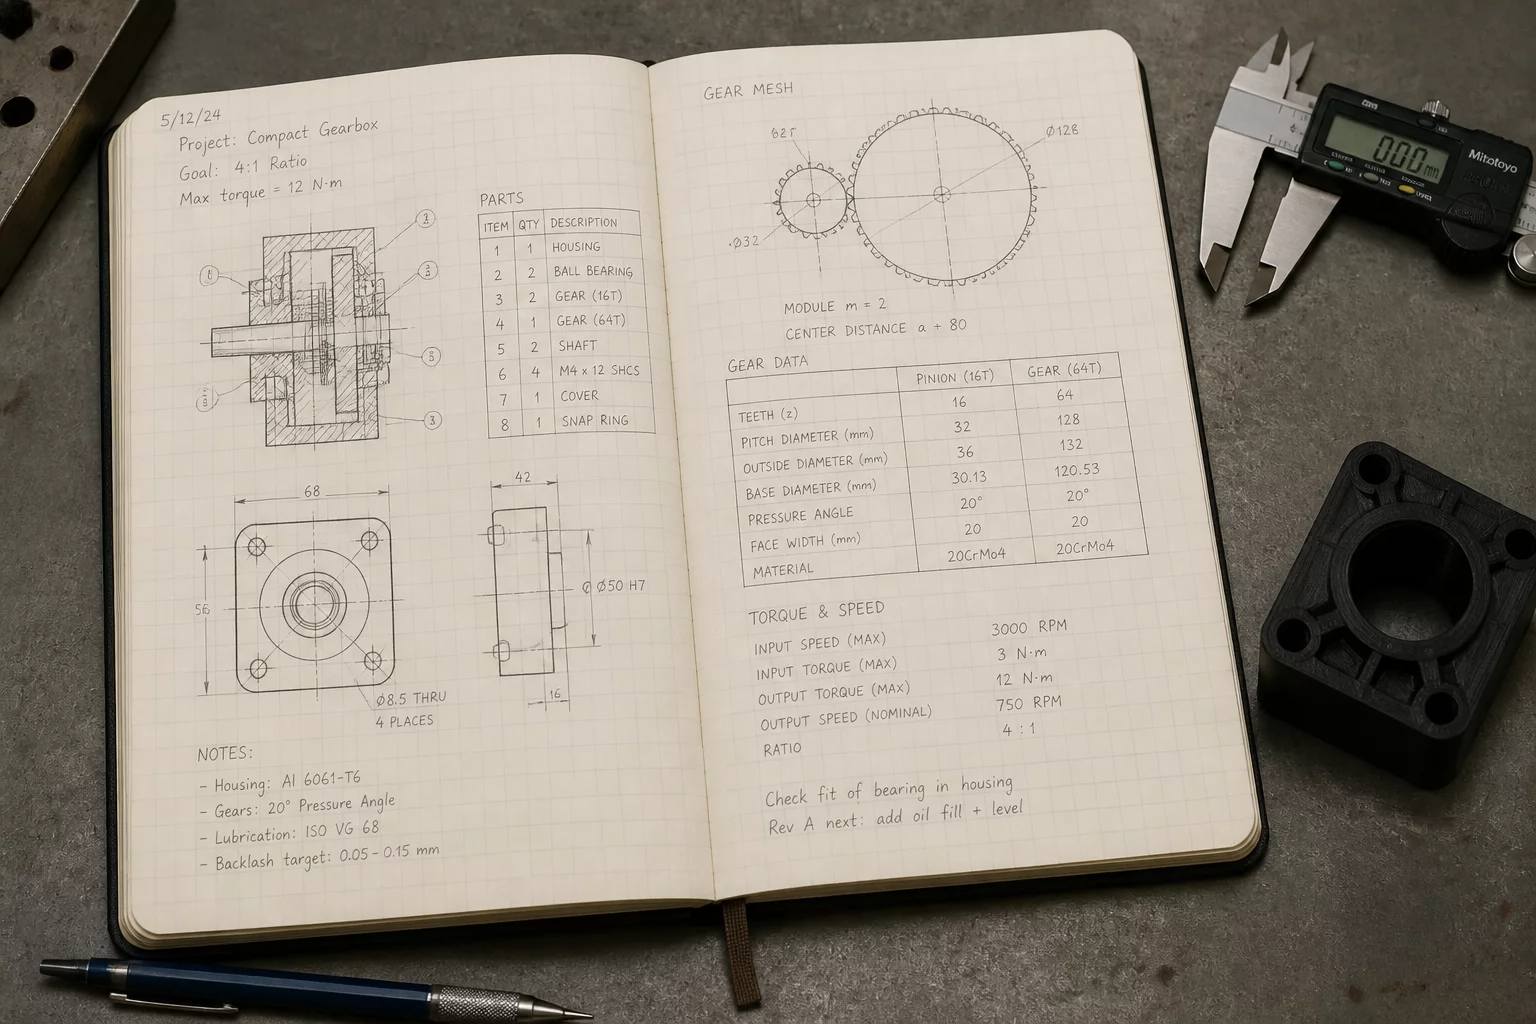 5/12/24
Project: Compact Gearbox
Goal: 4:1 Ratio
Max torque = 12 N·m
PARTS
ITEM QTY DESCRIPTION
1 1 HOUSING
2 2 BALL BEARING
3 2 GEAR (16T)
4 1 GEAR (64T)
5 2 SHAFT
6 4 M4 x 12 SHCS
7 1 COVER
8 1 SNAP RING
3
68
56
Ø8.5 THRU
4 PLACES
42
Ø50 H7
16
NOTES:
- Housing: Al 6061-T6
- Gears: 20° Pressure Angle
- Lubrication: ISO VG 68
- Backlash target: 0.05 - 0.15 mm
GEAR MESH
Ø128
Ø32
MODULE m = 2
CENTER DISTANCE a + 80
GEAR DATA
PINION (16T) GEAR (64T)
TEETH (z) 16 64
PITCH DIAMETER (mm) 32 128
OUTSIDE DIAMETER (mm) 36 132
BASE DIAMETER (mm) 30.13 120.53
PRESSURE ANGLE 20° 20°
FACE WIDTH (mm) 20 20
MATERIAL 20CrMo4 20CrMo4
TORQUE & SPEED
INPUT SPEED (MAX) 3000 RPM
INPUT TORQUE (MAX) 3 N·m
OUTPUT TORQUE (MAX) 12 N·m
OUTPUT SPEED (NOMINAL) 750 RPM
RATIO 4 : 1
Check fit of bearing in housing
Rev A next: add oil fill + level
0.00 mm
Mitotoyo